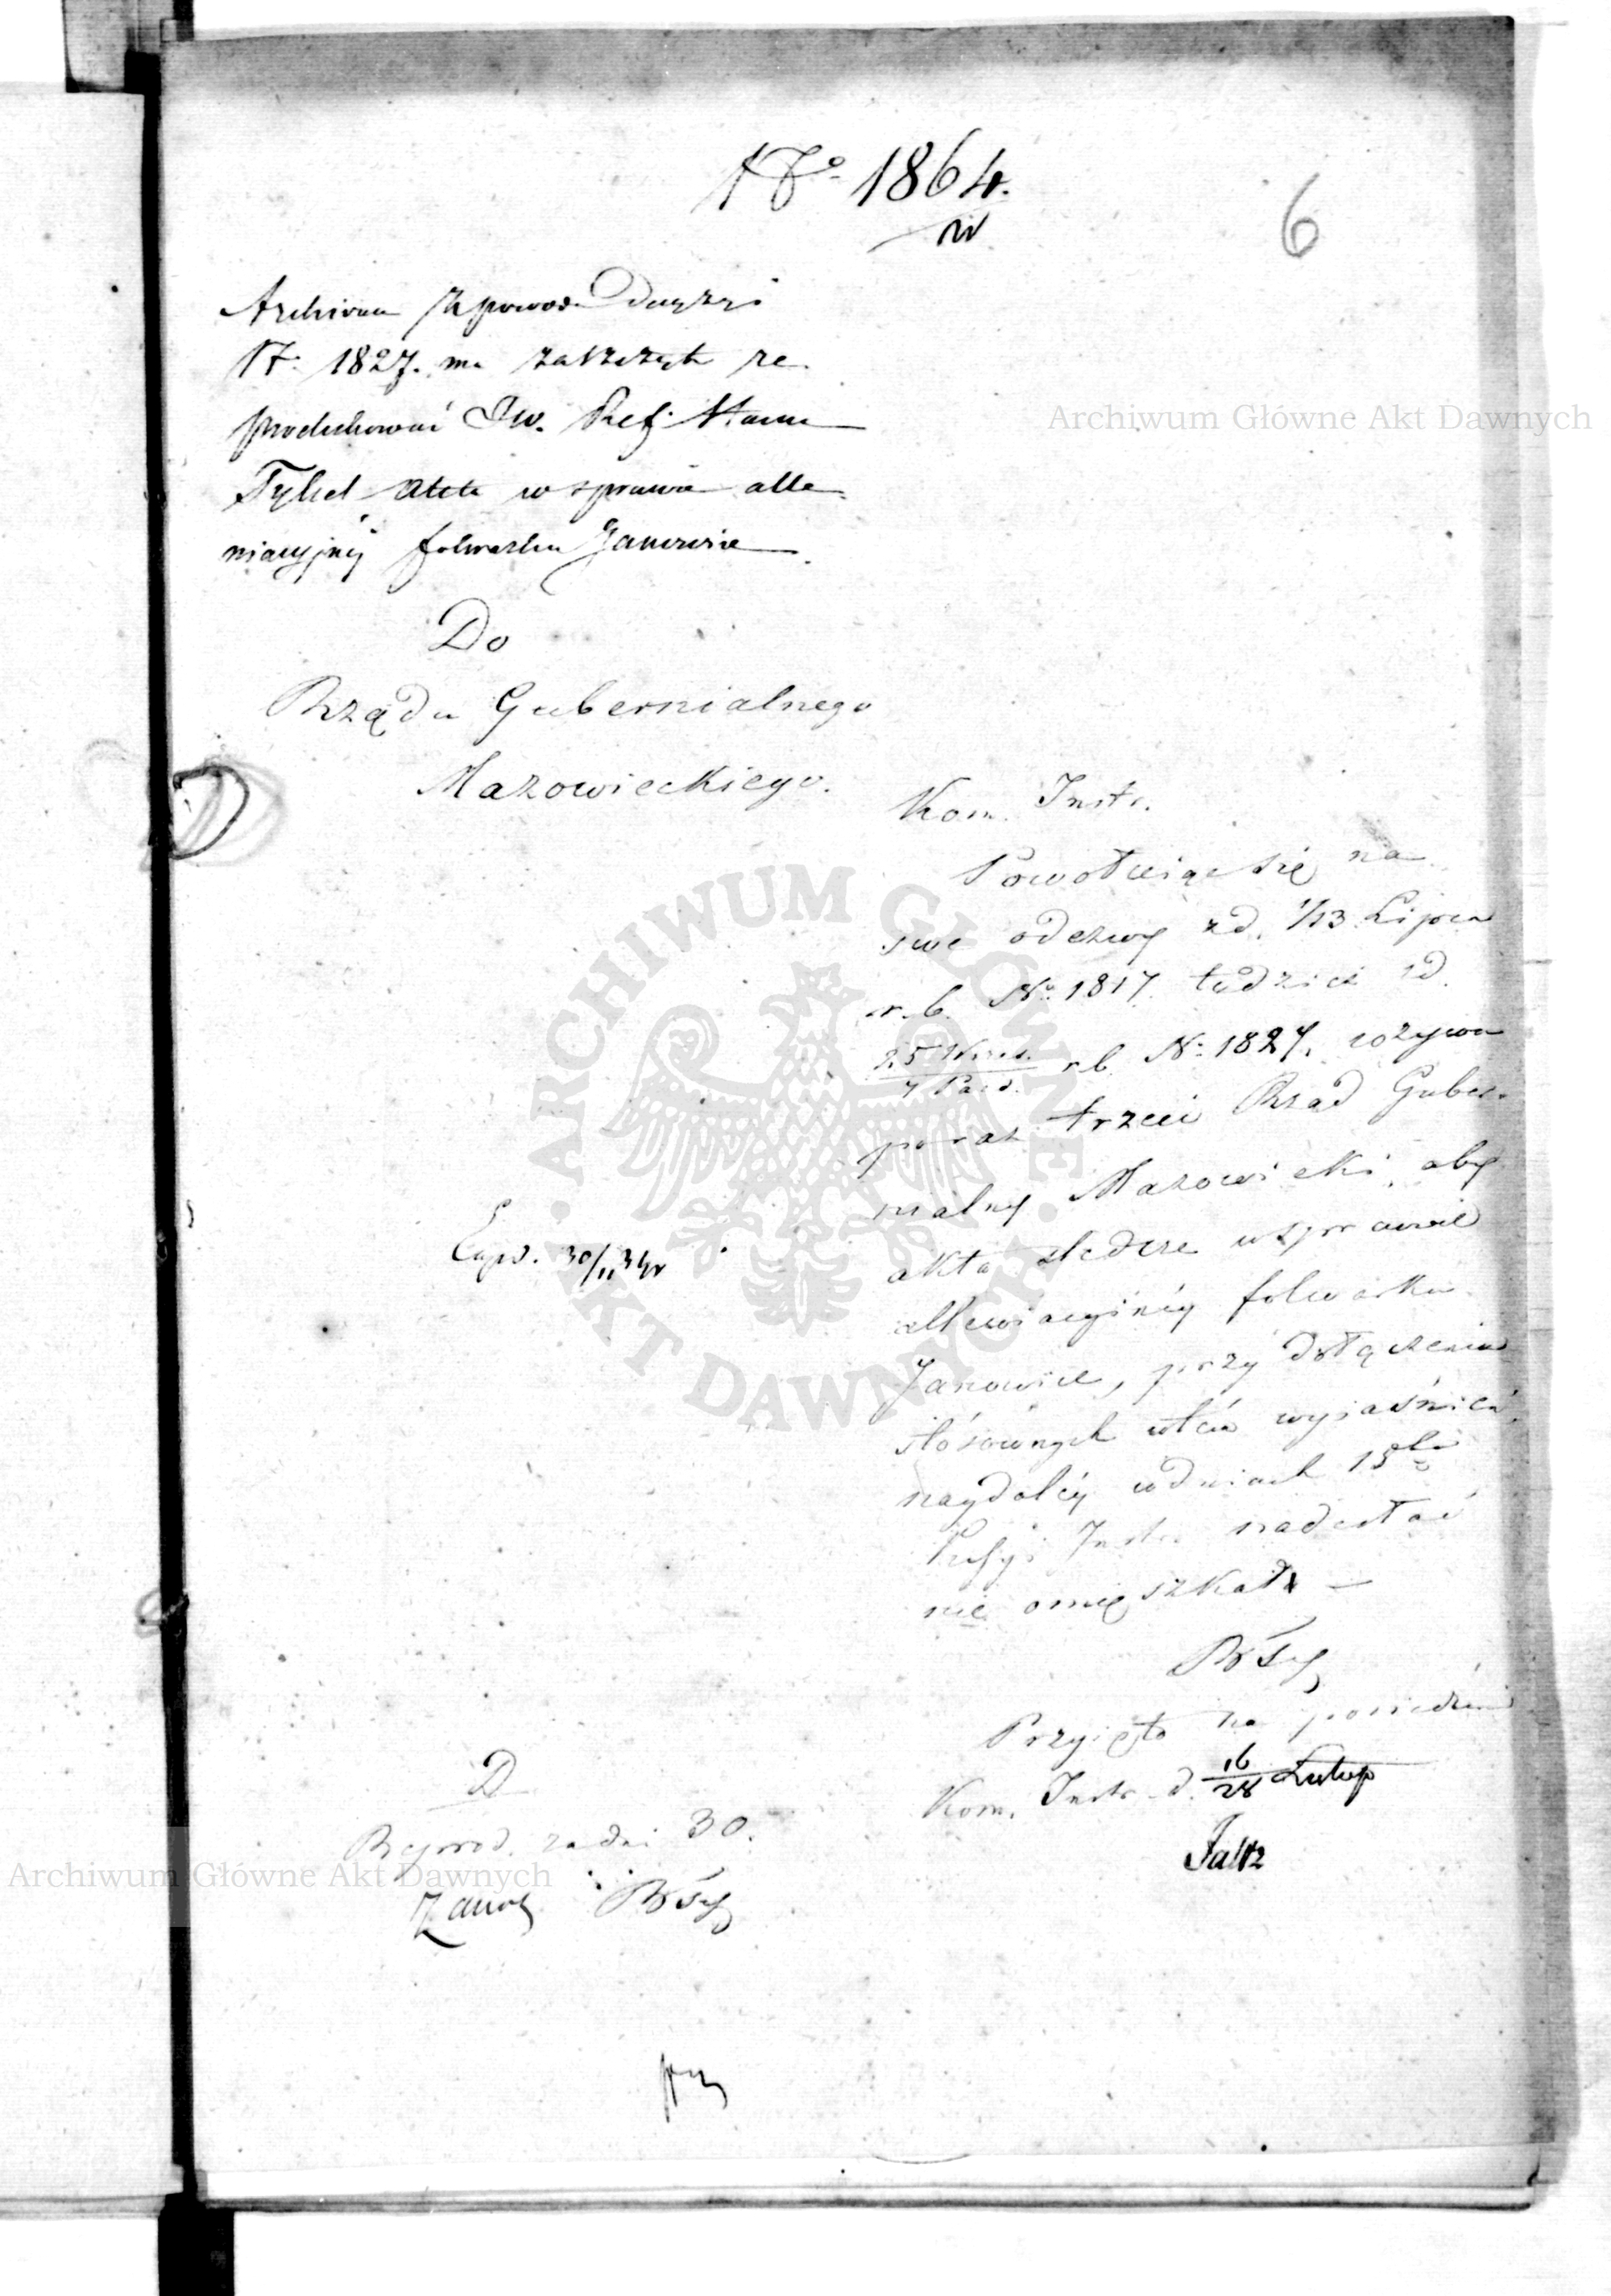 Nº 1864.
6
Archiwum z powodu Decyzyi
N. 1827. ma zaszczyt re-
produkować JW. Ref. Stanu
Tykel akta w sprawie alle-
wiacyjnéj folwarku Janowice
Do
Rządu Gubernialnego
Mazowieckiego.
Kom. Instr.
Powołuiąc się na
swe odezwy z d. 1/13 Lipca
r. b. Nº 1817. tudzież z d.
25 Wrześ./7 Paźd. r. b. Nº 1827. wzywa
po raz trzeci Rząd Guber-
nialny Mazowiecki, aby
akta śledcze w sprawie
allewiacyinéy folwarku
Janowice, przy dołączeniu
stósownych wyiaśnień
naydaléy w dniach 15
Instr. nadesłać
nie omięszkał —
Przyięto na posiedzeniu
Kom. Instr. d. 16/28 Lutego
D
Reprod. za dni 30.
Archiwum Główne Akt Dawnych
ARCHIWUM GŁÓWNE AKT DAWNYCH
Archiwum Główne Akt Dawnych